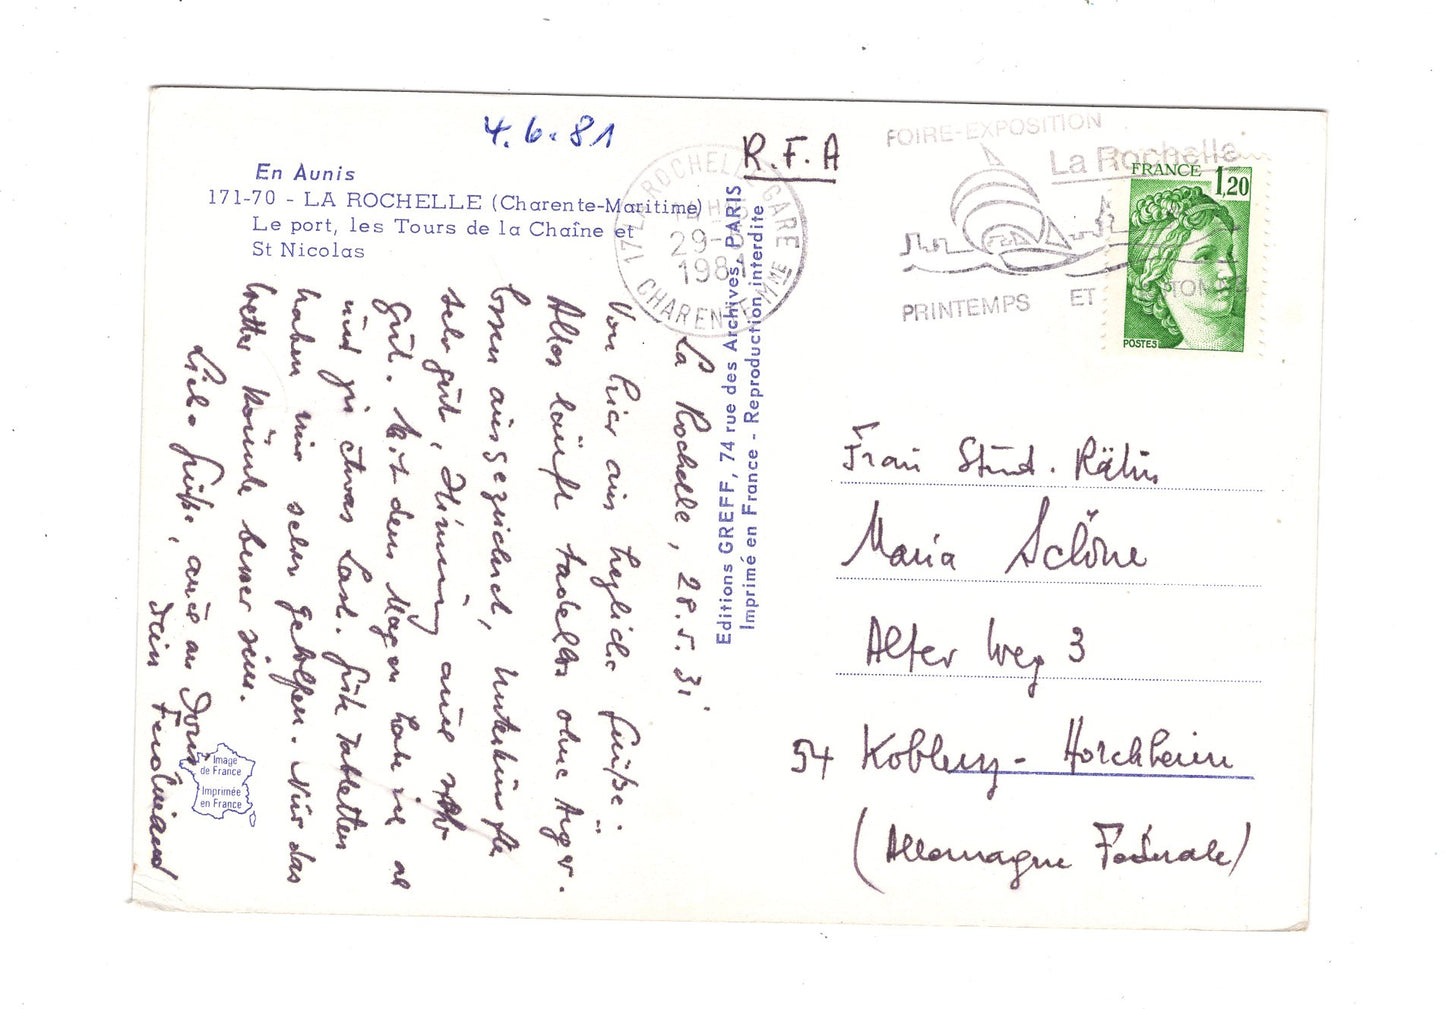 4.6.81
R.F.A
En Aunis
171-70 - LA ROCHELLE (Charente-Maritime)
Le port, les Tours de la Chaîne et
St Nicolas
17 LA ROCHELLE GARE
29-
1981
CHARENTE MME
FOIRE-EXPOSITION
La Rochelle
PRINTEMPS ET
FRANCE 1,20
POSTES
Editions GREFF, 74 rue des Archives, PARIS
Imprimé en France - Reproduction interdite
La Rochelle, 28.5.81
Von hier aus herzliche Grüße.
Alles läuft tadellos ohne Ärger.
Essen ausgezeichnet, Unterkünfte
sehr gut, Stimmung auch sehr
gut. Mit dem Magen habe ich ab
und zu etwas Last. Gute Tabletten
haben mir sehr geholfen. Nur das
Wetter könnte besser sein.
Liebe Grüße, auch an Doris
Dein Ferdinand
Frau Stud. Rätin
Maria Schöne
Alter Weg 3
54 Koblenz-Horchheim
(Allemagne Federale)
Image
de France
Imprimée
en France